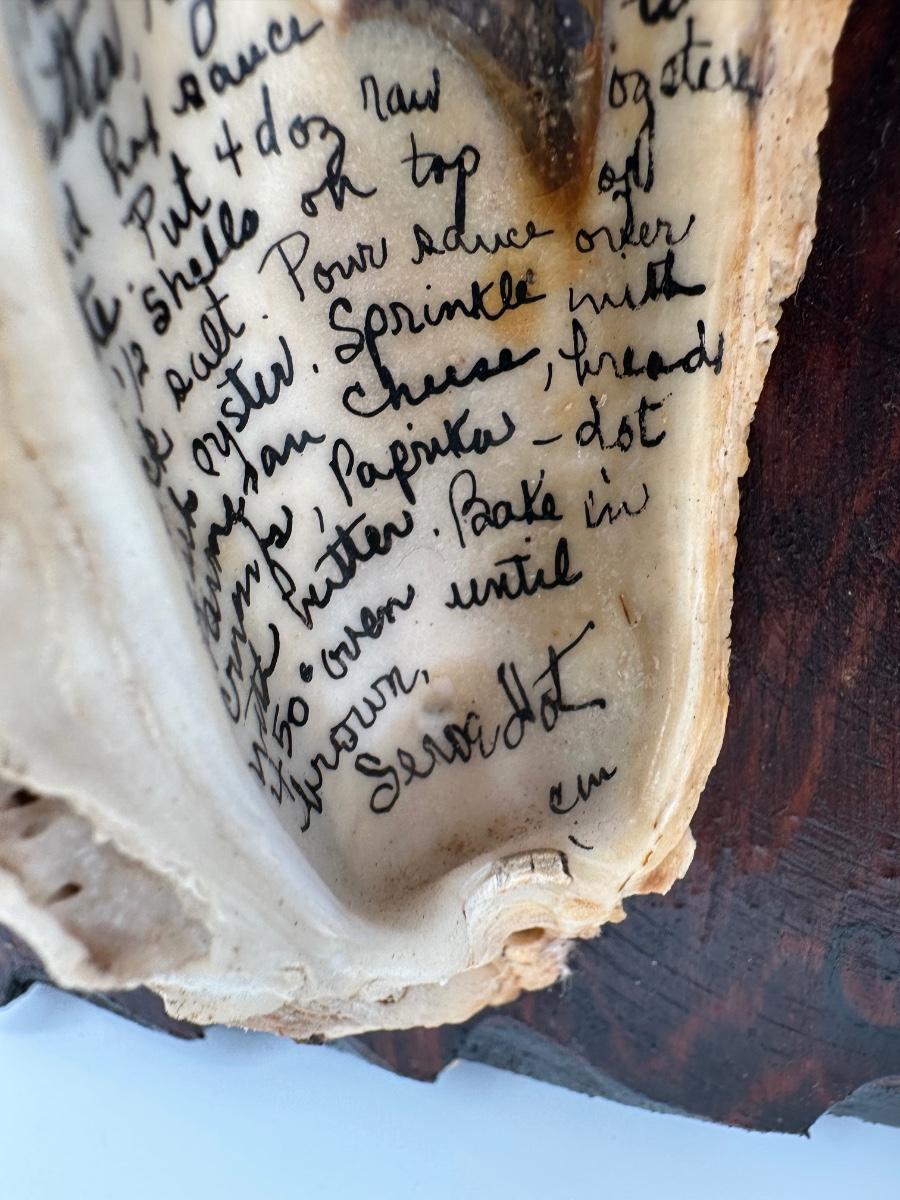 to
sauce
hot oysters
Put 4 doz raw
shells on top of
salt. Pour sauce over
oyster. Sprinkle with
cheese, bread
crumbs, Paprika - dot
with butter. Bake in
450° oven until
brown.
Serve Hot
cm